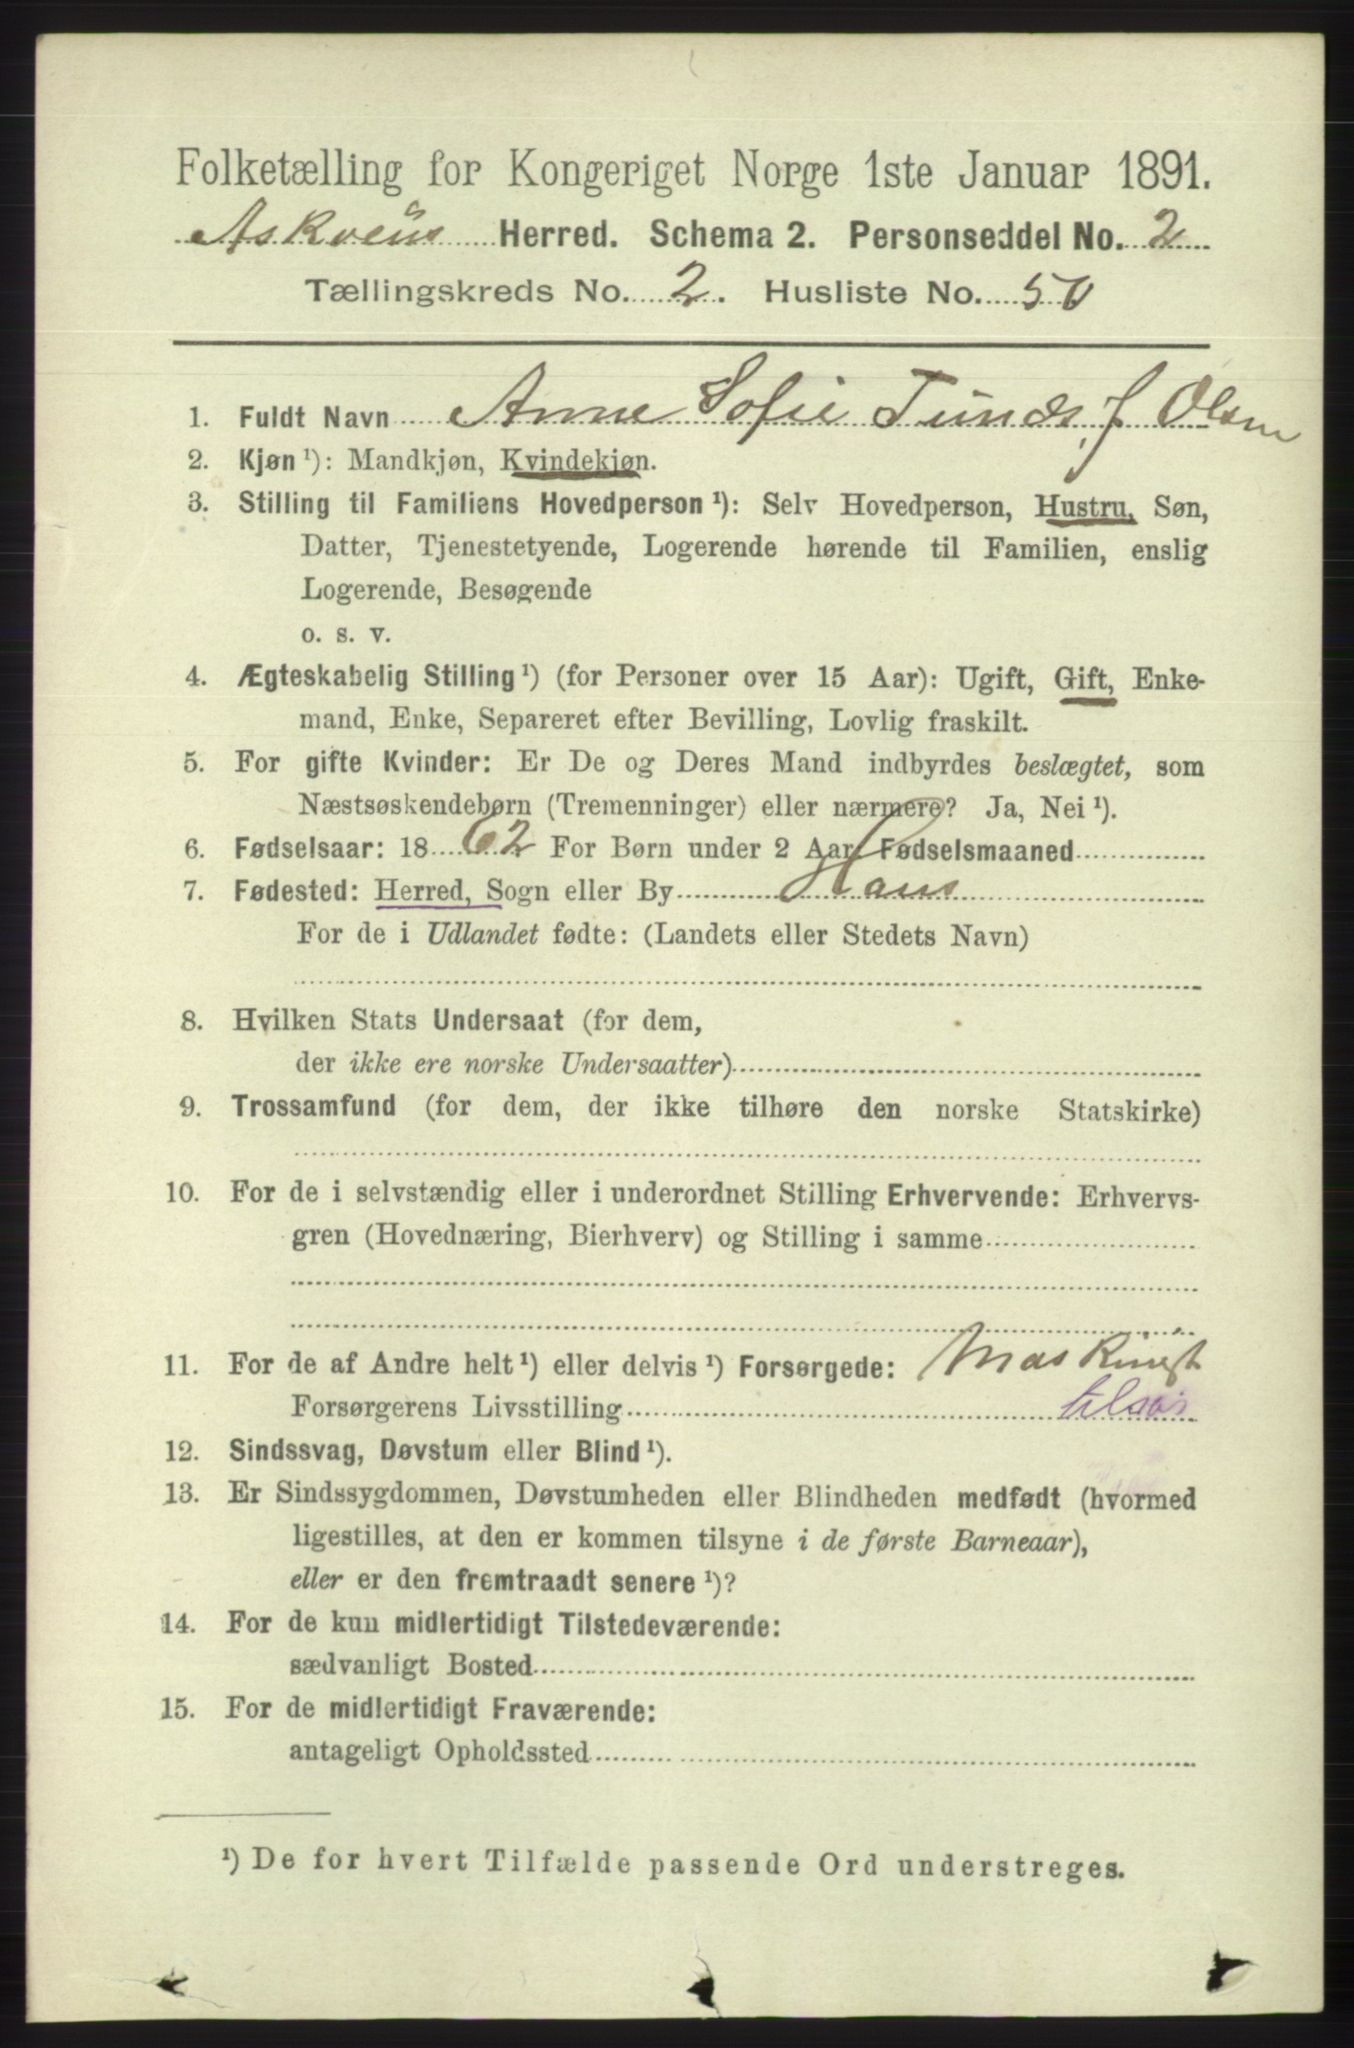 Folketælling for Kongeriget Norge 1ste Januar 1891.
Askvens Herred. Schema 2. Personseddel No. 2
Tællingskreds No. 2. Husliste No. 50
1. Fuldt Navn Anne Sofie Tunds, f Olsen
2. Kjøn ¹): Mandkjøn, Kvindekjøn.
3. Stilling til Familiens Hovedperson ¹): Selv Hovedperson, Hustru, Søn,
Datter, Tjenestetyende, Logerende hørende til Familien, enslig
Logerende, Besøgende
o. s. v.
4. Ægteskabelig Stilling ¹) (for Personer over 15 Aar): Ugift, Gift, Enke-
mand, Enke, Separeret efter Bevilling, Lovlig fraskilt.
5. For gifte Kvinder: Er De og Deres Mand indbyrdes beslægtet, som
Næstsøskendebørn (Tremenninger) eller nærmere? Ja, Nei ¹).
6. Fødselsaar: 18 62 For Børn under 2 Aar, Fødselsmaaned
7. Fødested: Herred, Sogn eller By Haus
For de i Udlandet fødte: (Landets eller Stedets Navn)
8. Hvilken Stats Undersaat (for dem,
der ikke ere norske Undersaatter)
9. Trossamfund (for dem, der ikke tilhøre den norske Statskirke)
10. For de i selvstændig eller i underordnet Stilling Erhvervende: Erhvervs-
gren (Hovednæring, Bierhverv) og Stilling i samme
11. For de af Andre helt ¹) eller delvis ¹) Forsørgede: Maskinist
Forsørgerens Livsstilling
12. Sindssvag, Døvstum eller Blind ¹).
13. Er Sindssygdommen, Døvstumheden eller Blindheden medfødt (hvormed
ligestilles, at den er kommen tilsyne i de første Barneaar),
eller er den fremtraadt senere ¹)?
14. For de kun midlertidigt Tilstedeværende:
sædvanligt Bosted
15. For de midlertidigt Fraværende:
antageligt Opholdssted
¹) De for hvert Tilfælde passende Ord understreges.